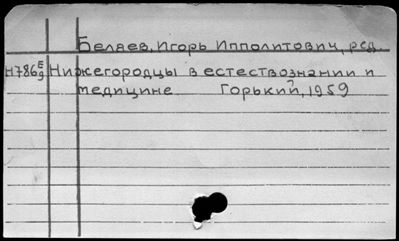 Беляев, Игорь Ипполитович, ред.
Н786 Е9 Нижегородцы в естествознании и
медицине Горький, 1959